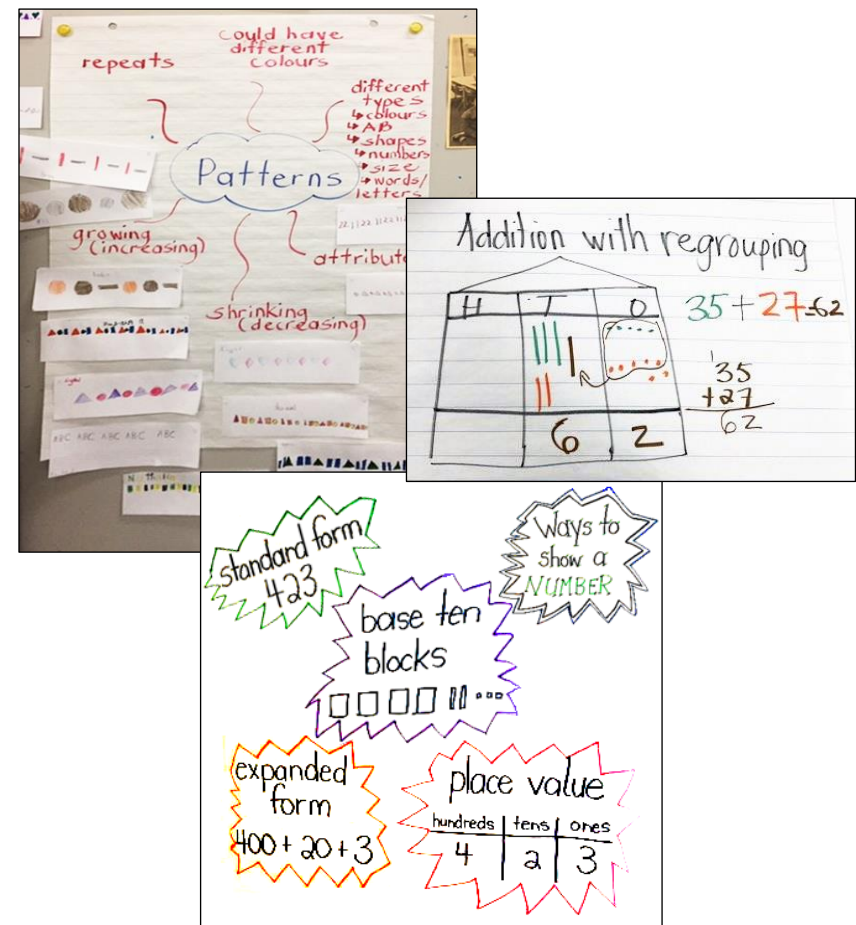 could have
different
colours
repeats
different
types
↳colours
↳AB
↳shapes
↳numbers
↳size
↳words/
letters
Patterns
growing
(increasing)
attribut
shrinking
(decreasing)
ABC ABC ABC ABC ABC
Addition with regrouping
H T O
35+27=62
1
35
+27
62
6 2
standard form
423
Ways to
show a
NUMBER
base ten
blocks
expanded
form
400 + 20 + 3
place value
hundreds tens ones
4 2 3